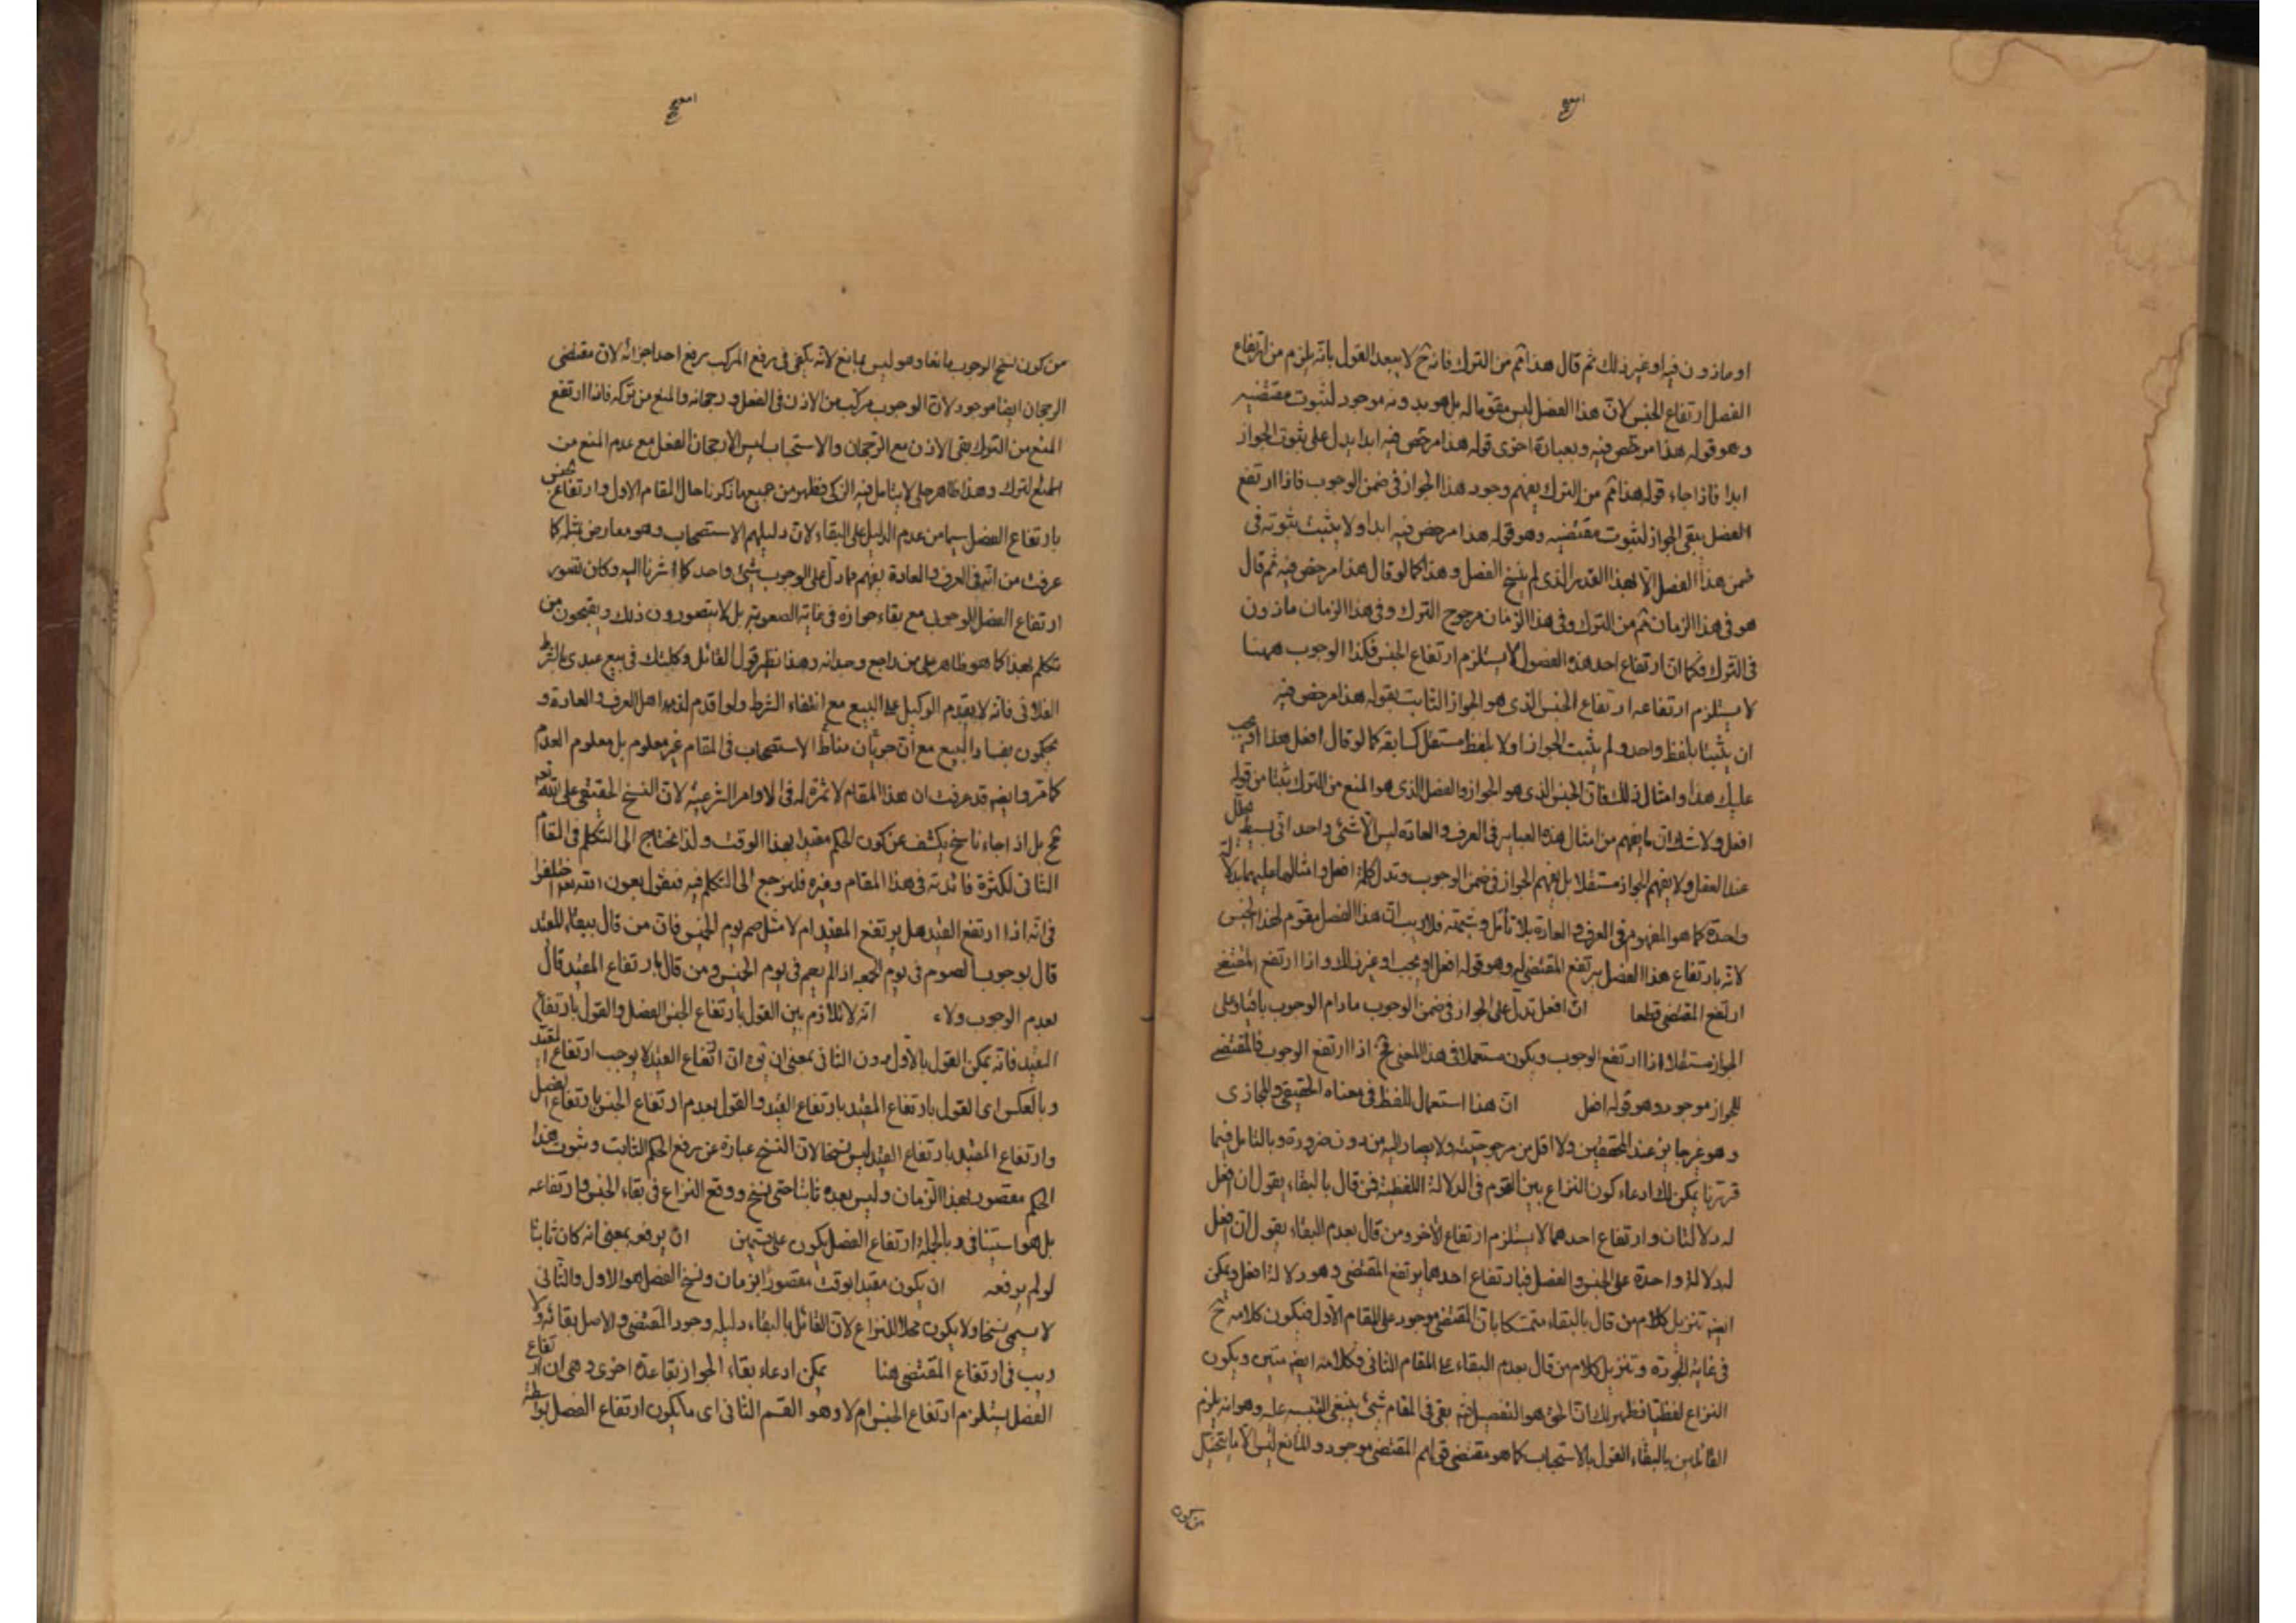 او ماذون فيه او غير ذلك ثم قال هذا ثم من الترك فانه ح لا يبعد القول بانه يلزم من ارتفاع
الفصل ارتفاع الجنس لان هذا الفصل ليس مقوما له بل هو بدونه موجود لثبوت مقتضيه
و هو قوله هذا مرخص فيه و بعبارة اخرى قوله هذا مرخص فيه ابدا يدل على ثبوت الجواز
ابدا فاذا جاء قوله هذا ثم من الترك يفهم وجود هذا الجواز في ضمن الوجوب فاذا ارتفع
الفصل يبقى الجواز لثبوت مقتضيه وهو قوله هذا مرخص فيه ابدا ولا يثبت ثبوته في
ضمن هذا الفصل الا لهذا القدر الذى لم ينسخ الفصل و هذا كما لو قال هذا مرخص فيه ثم قال
هو في هذا الزمان ثم من الترك وفي هذا الزمان مرجوح الترك وفي هذا الزمان ماذون
في الترك فكما ان ارتفاع احد هذه الفصول لا يستلزم ارتفاع الجنس فكذا الوجوب ههنا
لا يستلزم ارتفاعه ارتفاع الجنس الذى هو الجواز الثابت بقوله هذا مرخص فيه
ان يثبتا بلفظ واحد و لم يثبت الجواز اولا بلفظ مستقل كسابقه كما لو قال افعل هذا او يجب
عليك هذا و امثال ذلك فان الجنس الذى هو الجواز والفصل الذى هو المنع من الترك ثبتا من قوله
افعل ولا شك ان ما يفهم من امثال هذه العباير في العرف و العادة ليس الا شئ واحد اني بسيط
عند العقل ولا يفهم الجواز مستقلا بل يفهم الجواز في ضمن الوجوب و تدل كلمة افعل و امثالها عليهما بدلالة
واحدة كما هو المفهوم في العرف و العادة بلا تأمل و شبهة فلا ريب ان هذا الفصل مقوم لهذا الجنس
لانه بارتفاع هذا الفصل يرتفع المقتضي له وهو قوله افعل او يجب او غير ذلك و اذا ارتفع المقتضي
ارتفع المقتضى قطعا ان افعل تدل على الجواز في ضمن الوجوب مادام الوجوب باقيا و على
الجواز مستقلا اذا ارتفع الوجوب ويكون مستعملا في هذا المعنى فح اذا ارتفع الوجوب فالمقتضي
للجواز موجود وهو قوله افعل ان هذا استعمال للفظ في معناه الحقيقي و المجازى
و هو غير جايز عند المحققين ولا اقل من مرجوحيته ولا يصار اليه من دون ضرورة و بالتامل فيما
قررنا يمكن لك ادعاء كون النزاع بين القوم في الدلالة اللفظية فمن قال بالبقاء يقول ان افعل
له دلالتان و ارتفاع احدهما لا يستلزم ارتفاع الاخر و من قال بعدم البقاء يقول ان افعل
له دلالة واحدة على الجنس و الفصل فبارتفاع احدهما يرتفع المقتضي وهو دلالة افعل و يمكن
ايضه تنزيل كلام من قال بالبقاء متمسكا بان المقتضي موجود على المقام الاول فيكون كلامه ح
في غاية الجودة و تنزيل كلام من قال بعدم البقاء على المقام الثاني و كلامه ايضه متين و يكون
النزاع لفظيا فظهر لك ان الحق هو التفصيل بقى في المقام شئ ينبغي التنبيه عليه وهو انه يلزم
القائلين بالبقاء القول بالاستحباب كما هو مقتضى قولهم المقتضي موجود و المانع ليس الا ما يتخيل
من كون
من كون نسخ الوجوب مانعا وهو ليس بمانع لانه يكفى في رفع المركب رفع احد اجزائه لان مقتضى
الرجحان ايضا موجود لان الوجوب مركب من الاذن في الفعل و رجحانه و المنع من تركه فاذا ارتفع
المنع من الترك بقى الاذن مع الرجحان و الاستحباب ليس الا رجحان الفعل مع عدم المنع من
الترك و هذا ظاهر جلي لا يتامل فيه الزكى فظهر من جميع ما ذكرنا حال المقام الاول و ارتفاع الجنس
بارتفاع الفصل سيما من عدم الدليل على البقاء لان دليلهم الاستصحاب وهو معارض بمثله كما
عرفت من انه في العرف و العادة يفهم مما دل على الوجوب شئ واحد كما اشرنا اليه و كان تصور
ارتفاع الفصل للوجوب مع بقاء جوازه في غاية الصعوبة بل لا يتصورون ذلك و يقبحون من
تكلم بهذا كما هو ظاهر على من راجع وجدانه و هذا نظير قول القائل وكلتك في بيع عبدى بالشرط
الفلاني فانه لا يقدم الوكيل على البيع مع انتفاء الشرط و لو اقدم لذمه اهل العرف و العادة و
يحكمون بفساد البيع مع ان جريان مناط الاستصحاب في المقام غير معلوم بل معلوم العدم
كما مر و ايضه قد عرفت ان هذا المقام لا ثمرة له في الاوامر الشرعية لان النسخ الحقيقي على الله تعه
مح بل اذا جاء ناسخ يكشف عن كون الحكم مقيدا بهذا الوقت و لذا نحتاج الى التكلم في المقام
الثاني لكثرة فائدته في هذا المقام و غيره فلنرجع الى التكلم فيه فنقول بعون الله تعه اختلفوا
في انه اذا ارتفع القيد هل يرتفع المقيد ام لا مثل صم يوم الخميس فان من قال ببقاء المقيد
قال بوجوب الصوم في يوم الجمعة اذا لم يصم في يوم الخميس و من قال بارتفاع المقيد قال
بعدم الوجوب ولاء انه لا تلازم بين القول بارتفاع الجنس الفصل و القول بارتفاع
القيد فانه يمكن القول بالاول دون الثاني بمعنى ان يق ان ارتفاع القيد لا يوجب ارتفاع المقيد
و بالعكس اى القول بارتفاع المقيد بارتفاع القيد و القول بعدم ارتفاع الجنس بارتفاع الفصل
و ارتفاع المقيد بارتفاع القيد ليس نسخا لان النسخ عبارة عن رفع الحكم الثابت و ثبوت هذا
الحكم مقصور بهذا الزمان و ليس بعده ثابتا حتى ينسخ و وقع النزاع في بقاء الجنس و ارتفاعه
بل هو استينافى و بالجملة ارتفاع الفصل يكون على قسمين ان يرفعه بمعنى انه كان ثابتا
لو لم يرفعه ان يكون مقيدا بوقت مقصورا بزمان و نسخ الفصل هو الاول و الثاني
لا يسمى نسخا ولا يكون محلا للنزاع لان القائل بالبقاء دليله وجود المقتضي و الاصل بقائه و لا
ريب في ارتفاع المقتضي هنا يمكن ادعاء بقاء الجواز بقاعدة اخرى و هى ان ارتفاع
الفصل يستلزم ارتفاع الجنس ام لا و هو القسم الثاني اى ما يكون ارتفاع الفصل بواسطة